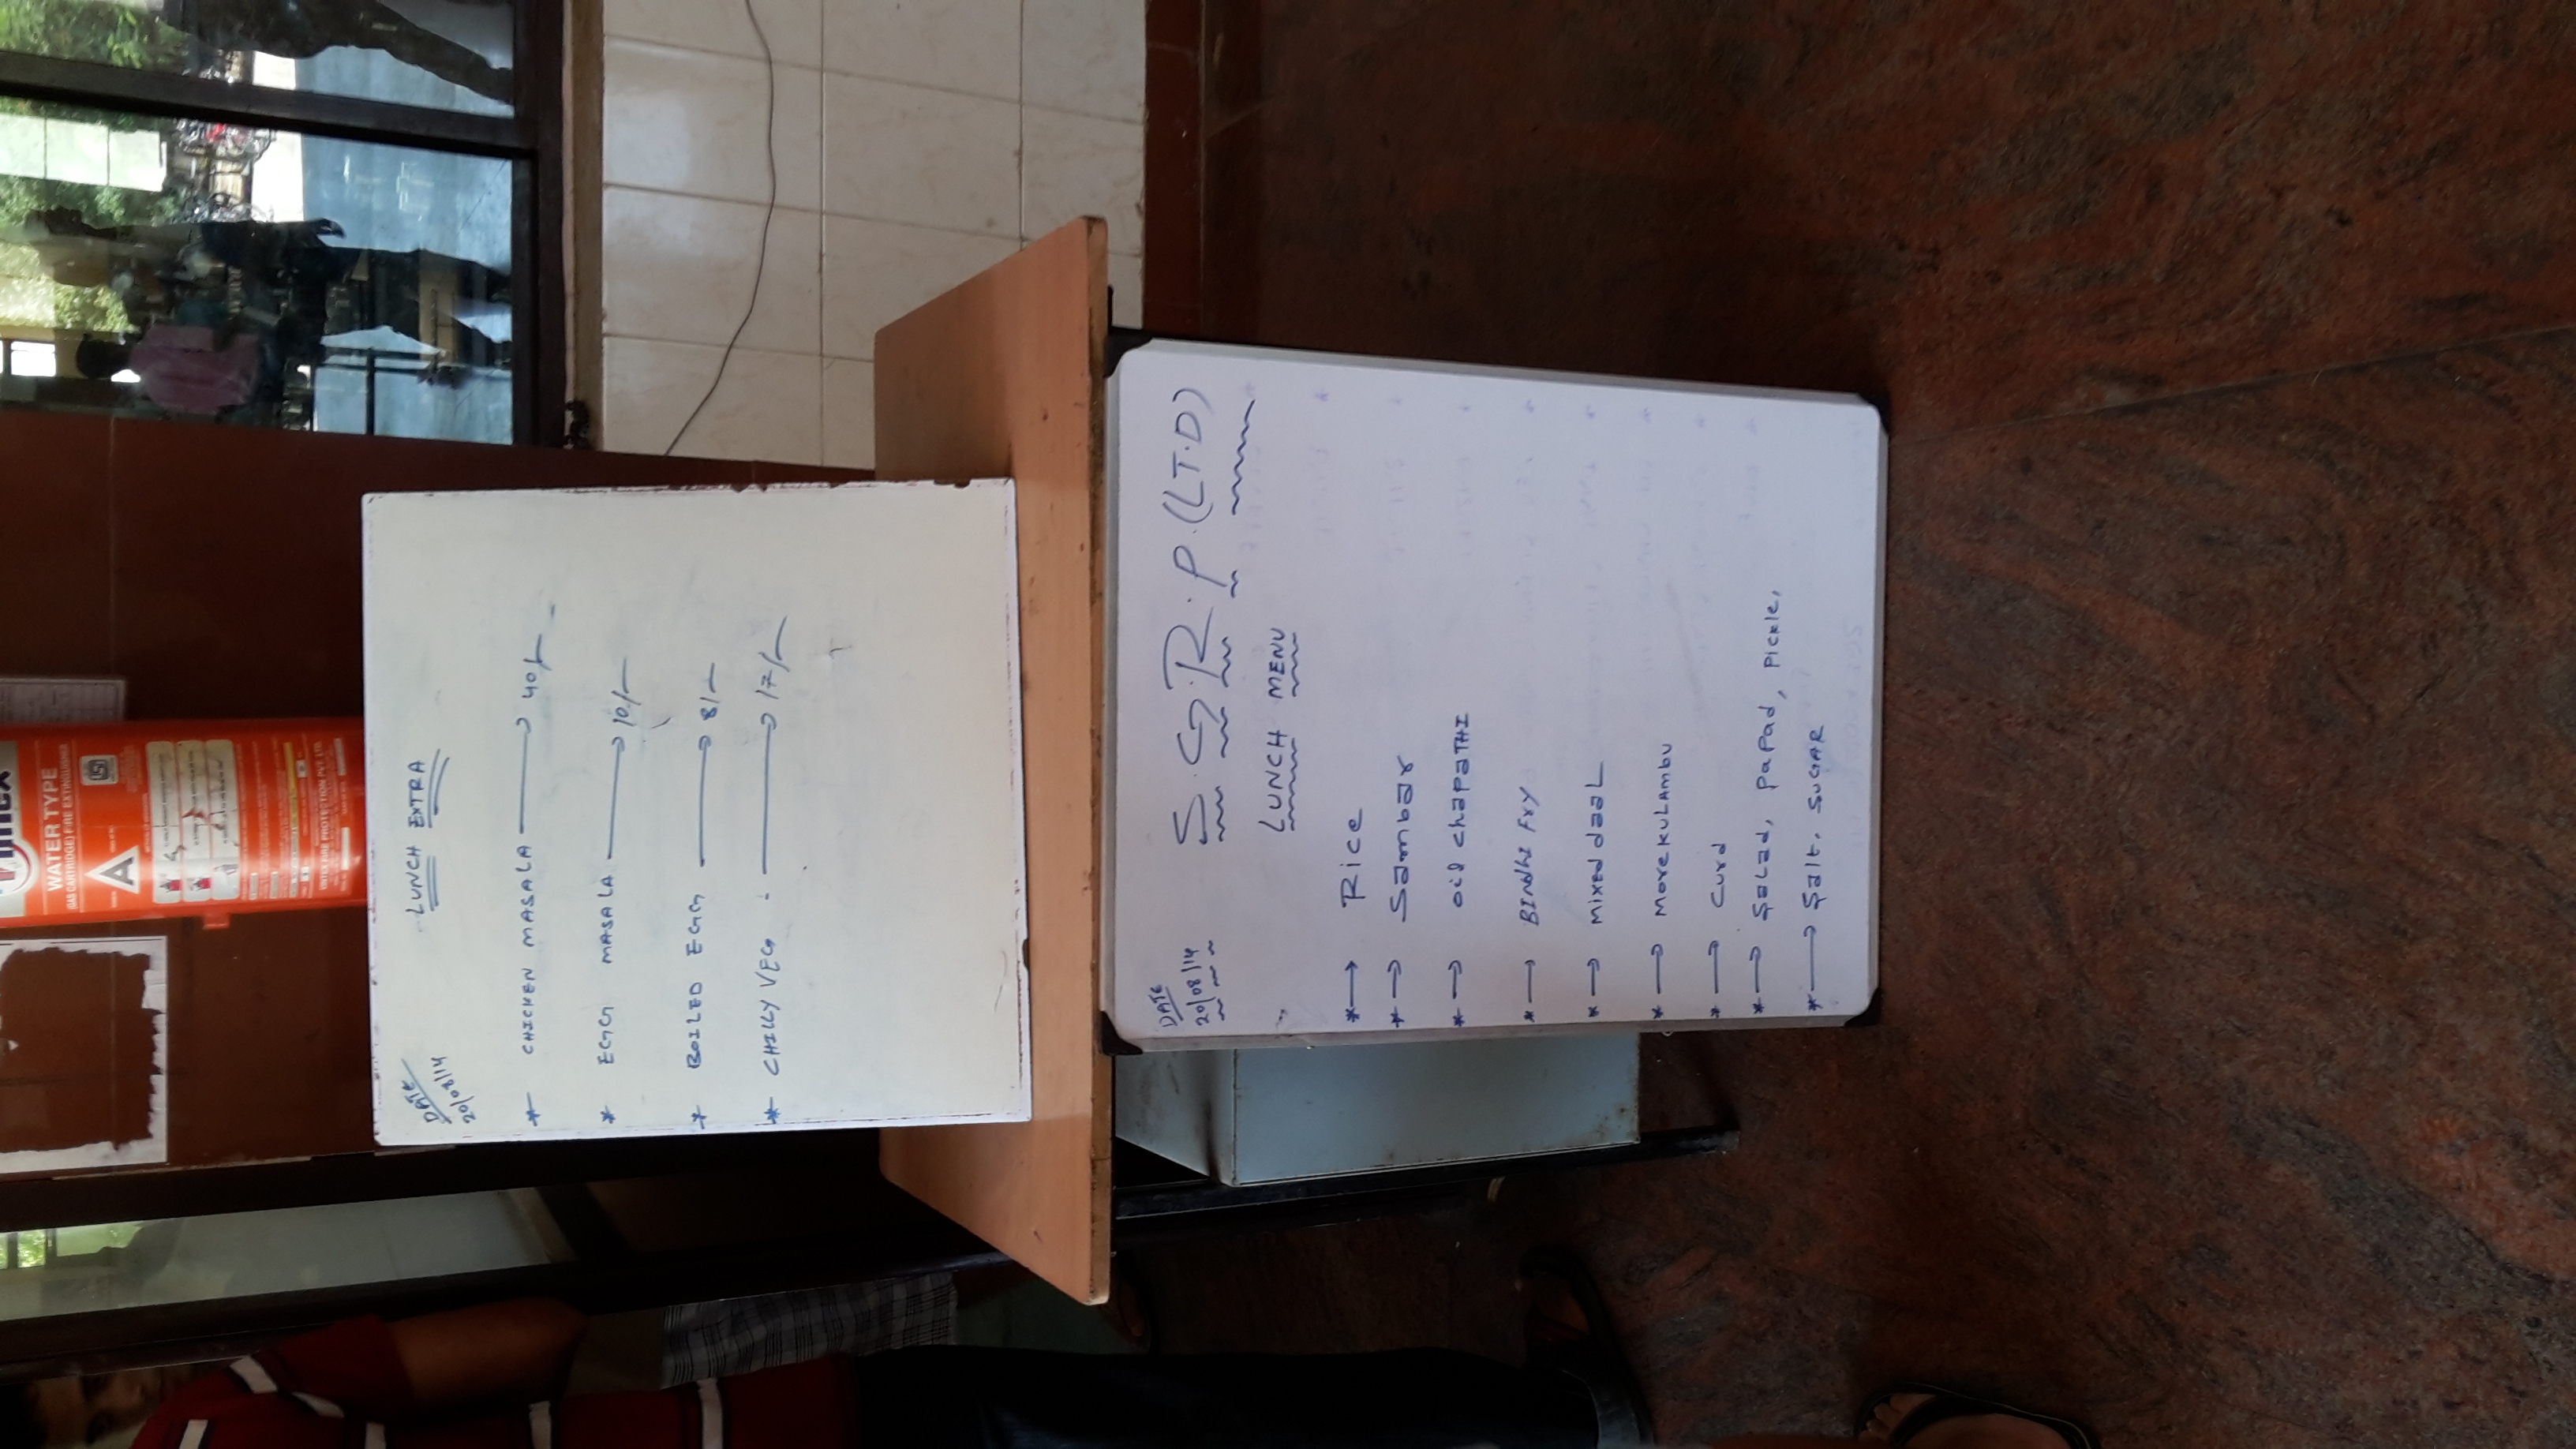 WATER TYPE
(GAS CARTRIDGE) FIRE EXTINGUISHER
A
ISI
VINTEX FIRE PROTECTION PVT. LTD.
DATE
20/08/14
LUNCH EXTRA
* CHICKEN MASALA → 40/-
* EGG MASALA → 10/-
* BOILED EGG → 8/-
* CHILLY VEG - → 17/-
DATE
20/08/14
S.G.R.P.(LT.D)
LUNCH MENU
*→ Rice
*→ Sambar
*→ oil chapaTHI
*→ BINdhI Fry
*→ Mixed daaL
*→ More KULAmbu
*→ Curd
*→ Salad, PaPad, Pickle,
*→ Salt, SUGAR